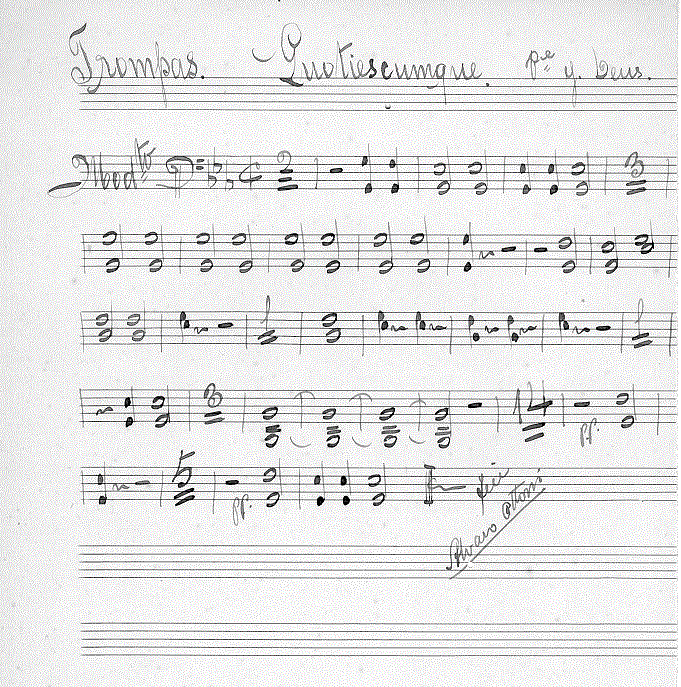 Trompas. Quotiescumque. Pe. J. Deus.
Modto 2 3
1
3 14 pp.
5 pp. Fim
Alvaro Ottoni